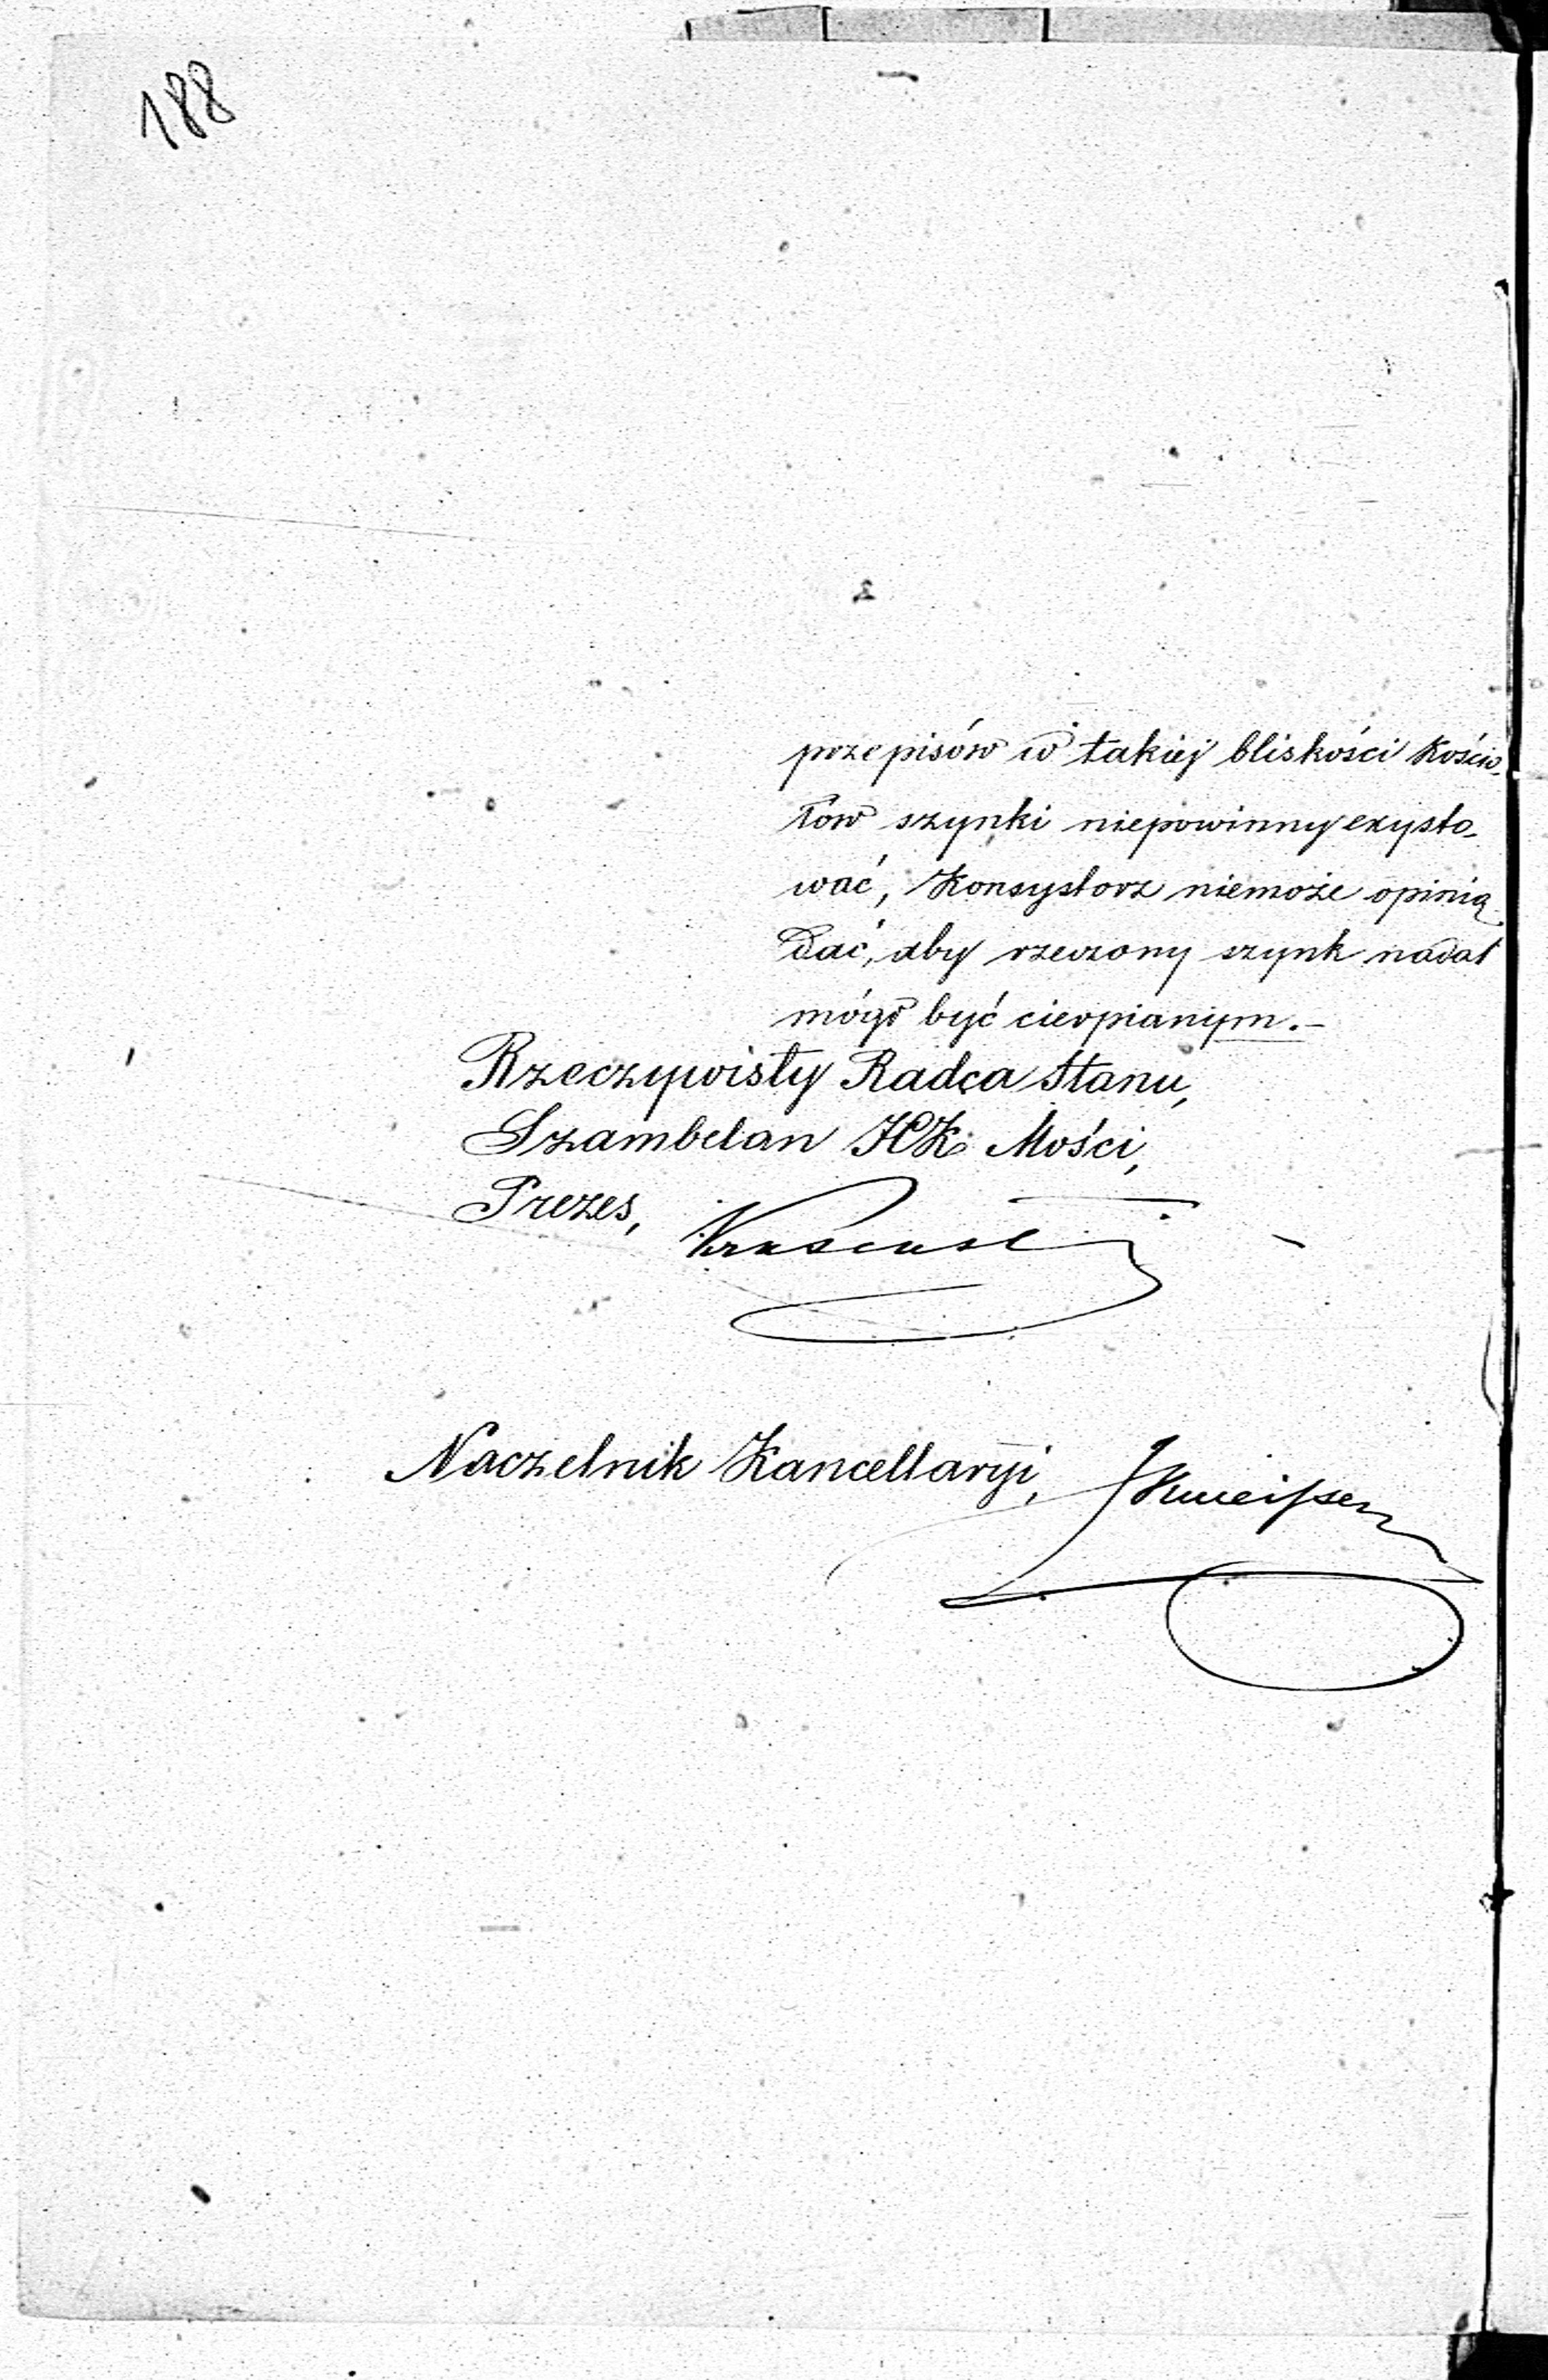 188
przepisów w takiej bliskości Kościo-
łów szynki niepowinny exysto-
wać, Konsystorz niemoże opinią
dać, aby rzeczony szynk nadal
mógł być cierpianym.-
Rzeczywisty Radca Stanu,
Szambelan JCK Mości,
Prezes,
Naczelnik Kancellaryi,